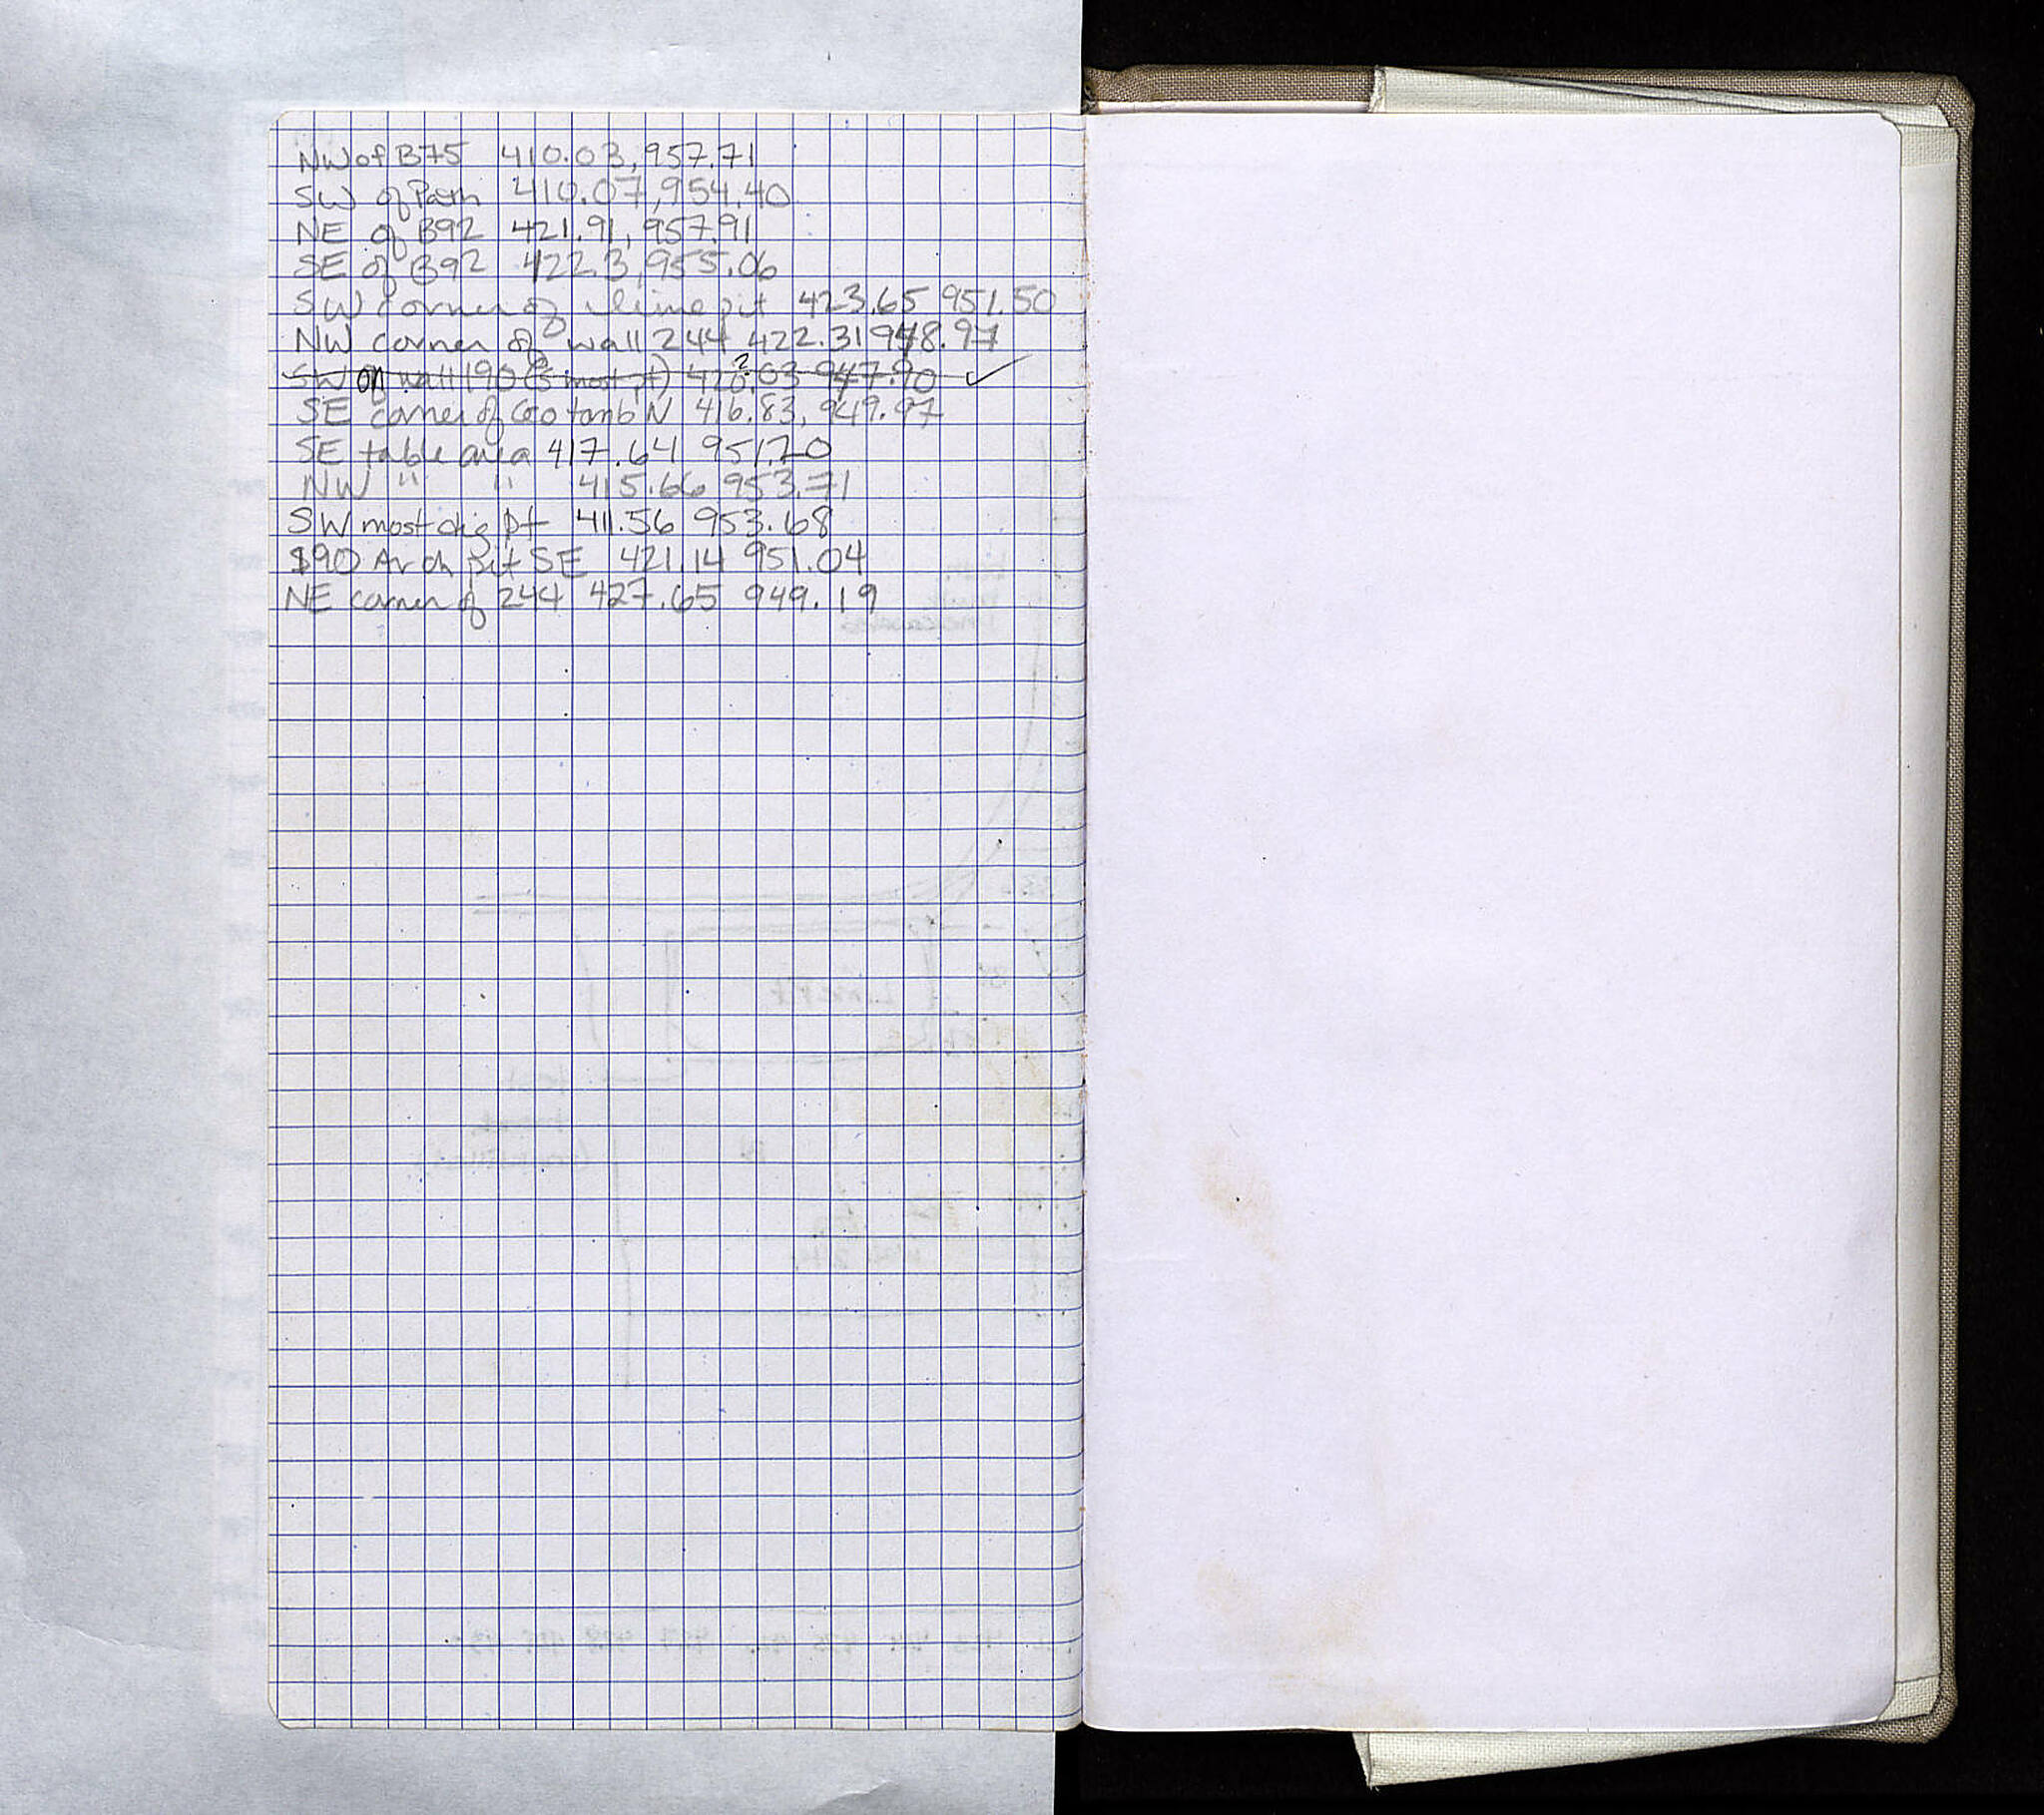 NW of B75 410.03, 957.71
SW of Path 410.07, 954.40
NE of B92 421.91, 957.91
SE of B92 422.3, 955.06
SW corner of lime pit 423.65 951.50
NW corner of wall 244 422.31 948.97
SW of wall 190 (S most pt) 420.03 947.90 ✓
SE corner of Geo tomb N 416.83, 949.97
SE table area 417.64 951.20
NW " " 415.66 953.71
SW most dig pt 411.56 953.68
$90 Arch pit SE 421.14 951.04
NE corner of 244 427.65 949.19